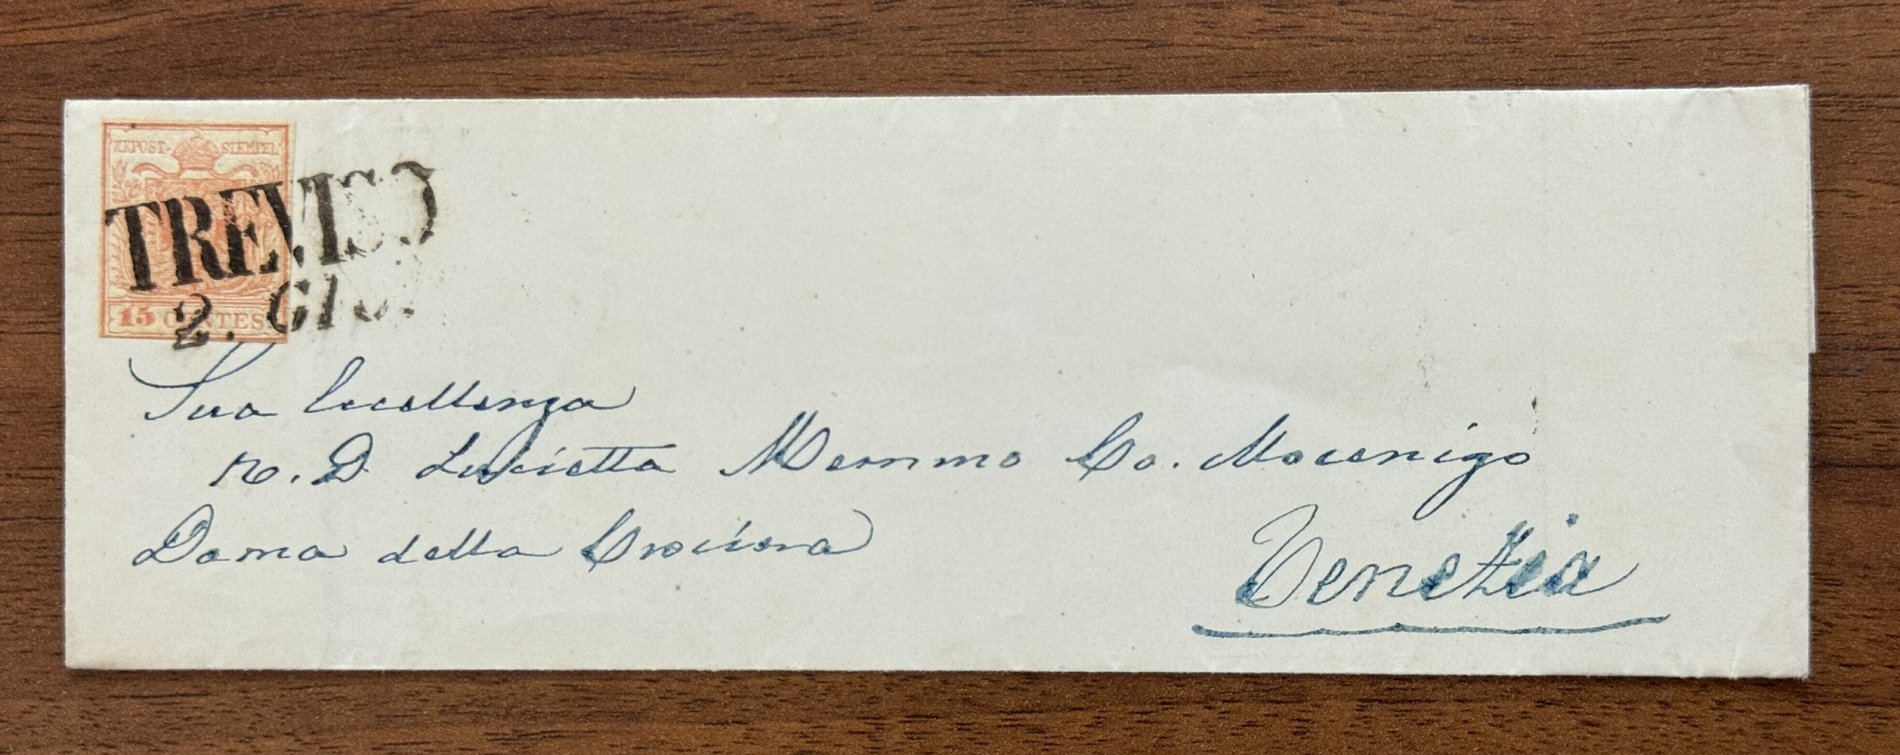 KKPOST-STEMPEL
TREVISO
2. GIU.
15 CENTES
Sua Eccellenza
N. D. Lucietta Memmo Co. Mocenigo
Dama della Crociera
Venezia